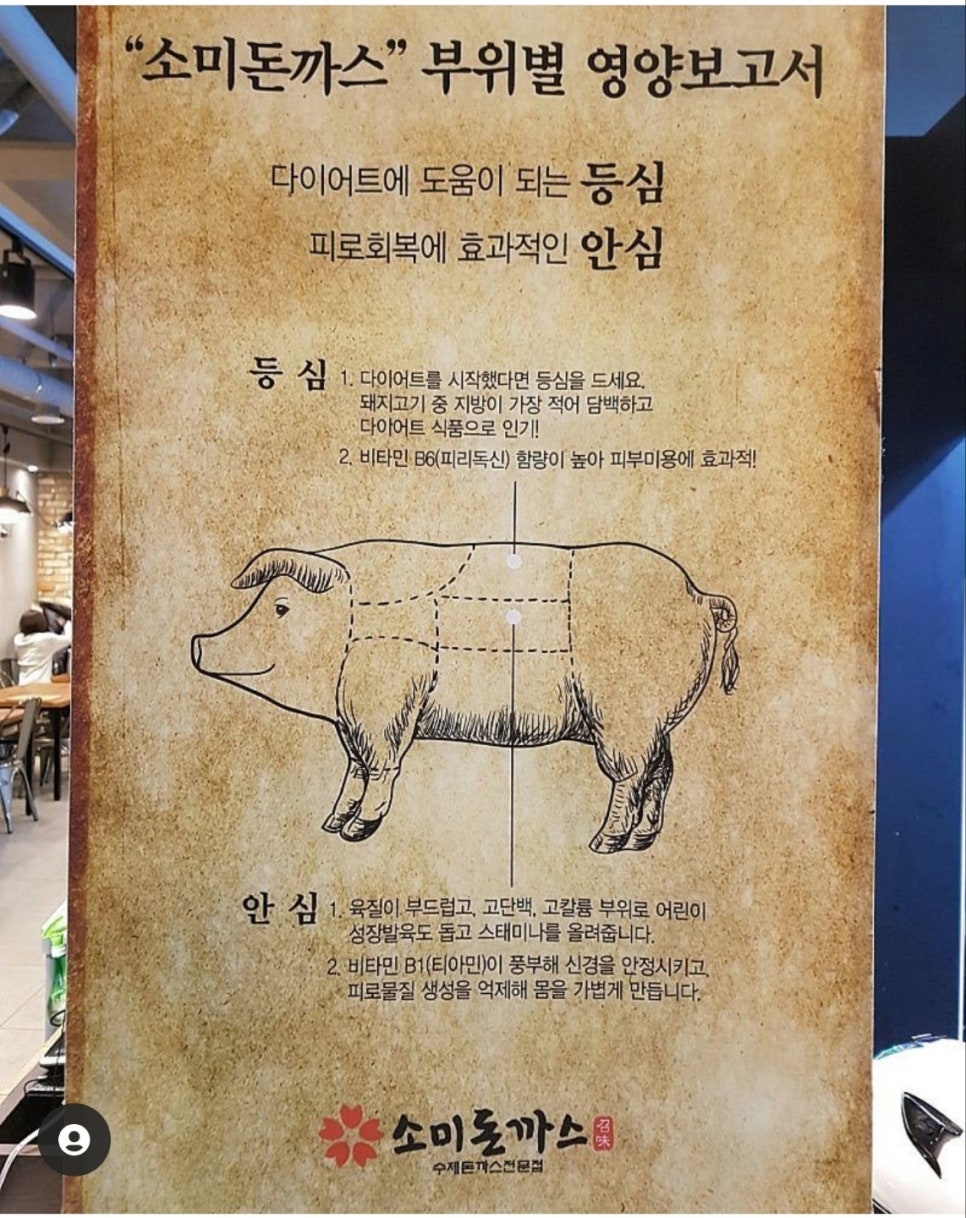 “소미돈까스” 부위별 영양보고서
다이어트에 도움이 되는 등심
피로회복에 효과적인 안심
등 심 1. 다이어트를 시작했다면 등심을 드세요.
돼지고기 중 지방이 가장 적어 담백하고
다이어트 식품으로 인기!
2. 비타민 B6(피리독신) 함량이 높아 피부미용에 효과적!
안 심 1. 육질이 부드럽고, 고단백, 고칼륨 부위로 어린이
성장발육도 돕고 스태미나를 올려줍니다.
2. 비타민 B1(티아민)이 풍부해 신경을 안정시키고,
피로물질 생성을 억제해 몸을 가볍게 만듭니다.
소미돈까스 召味
수제돈까스전문점